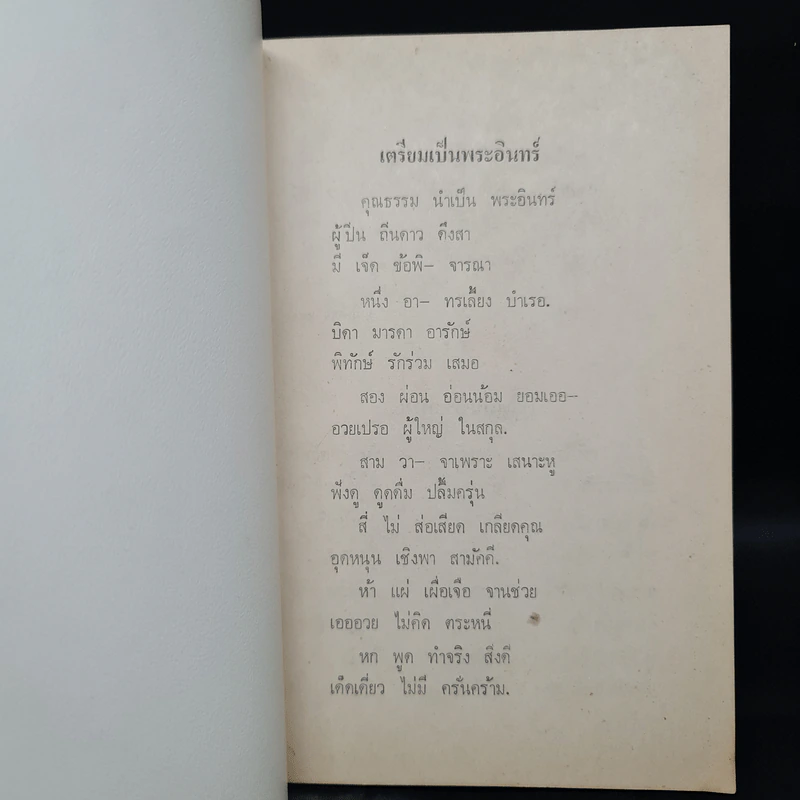 เตรียมเป็นพระอินทร์
คุณธรรม นำเป็น พระอินทร์
ผู้ปีน ถึนดาว ดึงสา
มี เจ็ด ข้อพิ– จารณา
หนึ่ง อา– ทรเลี้ยง บำเรอ.
บิดา มารดา อารักษ์
พิทักษ์ รักร่วม เสมอ
สอง ผ่อน อ่อนน้อม ยอมเออ–
อวยเปรอ ผู้ใหญ่ ในสกุล.
สาม วา– จาเพราะ เสนาะหู
ฟังดู ดูดดื่ม ปลื้มครุ่น
สี่ ไม่ ส่อเสียด เกลียดคุณ
อุดหนุน เชิงพา สามัคคี.
ห้า แผ่ เผื่อเจือ จานช่วย
เอออวย ไม่คิด ตระหนี่
หก พูด ทำจริง สิ่งดี
เด็ดเดี่ยว ไม่มี ครั่นคร้าม.